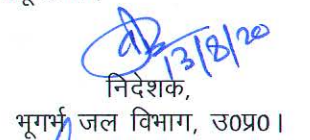 13/8/20
निदेशक,
भूगर्भ जल विभाग, उ0प्र0।